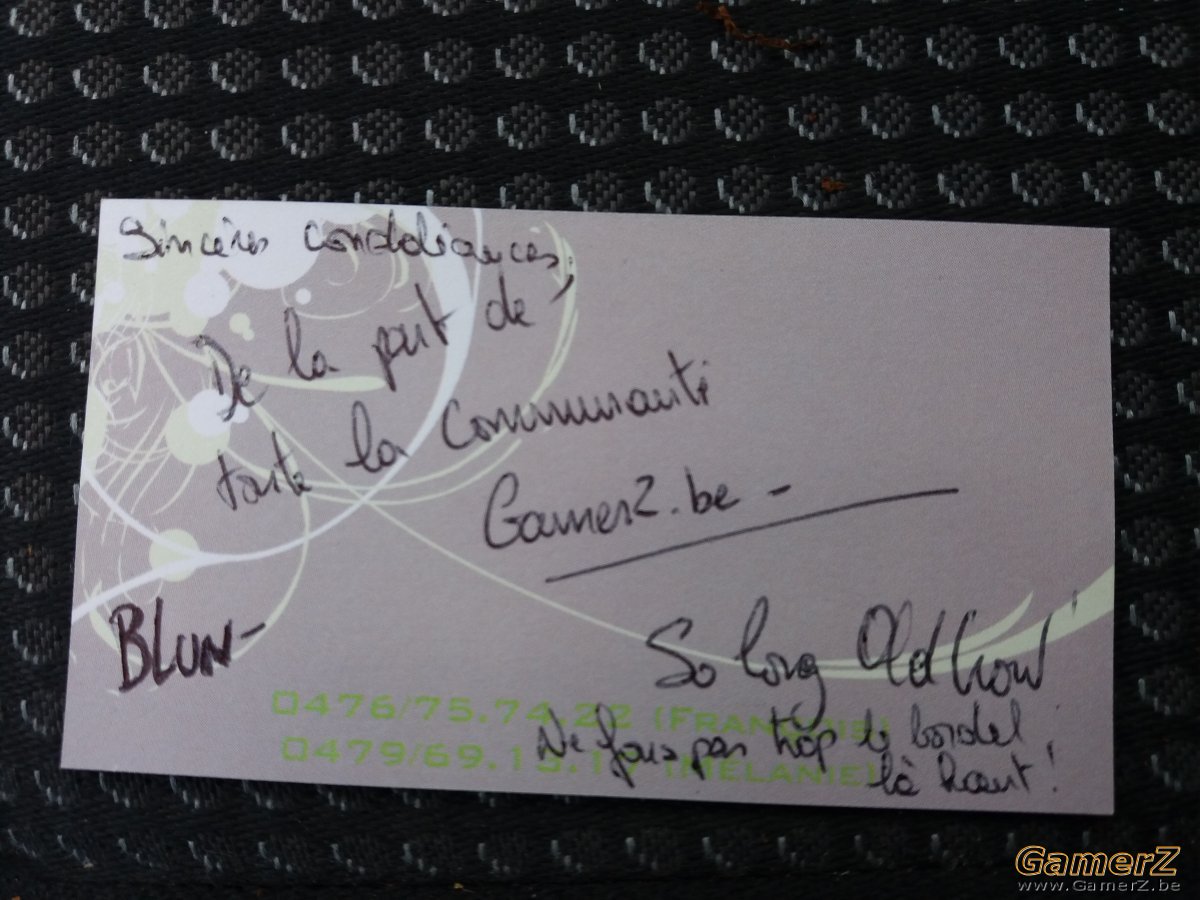 Sincères condoléances,
De la part de
toute la Communauté
GamerZ.be -
BLUN-
So long OldCrow
Ne fous pas trop le bordel
là haut !
0476/75.74.22 (Française)
0479/69.13. (Mélanie)
GamerZ
www.GamerZ.be